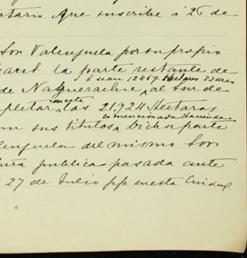 tario que suscribe a 26 de
Son Valenzuela por su propio
la parte restante de
ó sean 12869 Hectareas
de Na al Sur de
pletar las 21,924 Hectaras
la mencionada Hacienda
sus titulos, Dicha parte
lenzuela del mismo Son
publica pasada ante
27 de Julio ppo en esta Ciudad